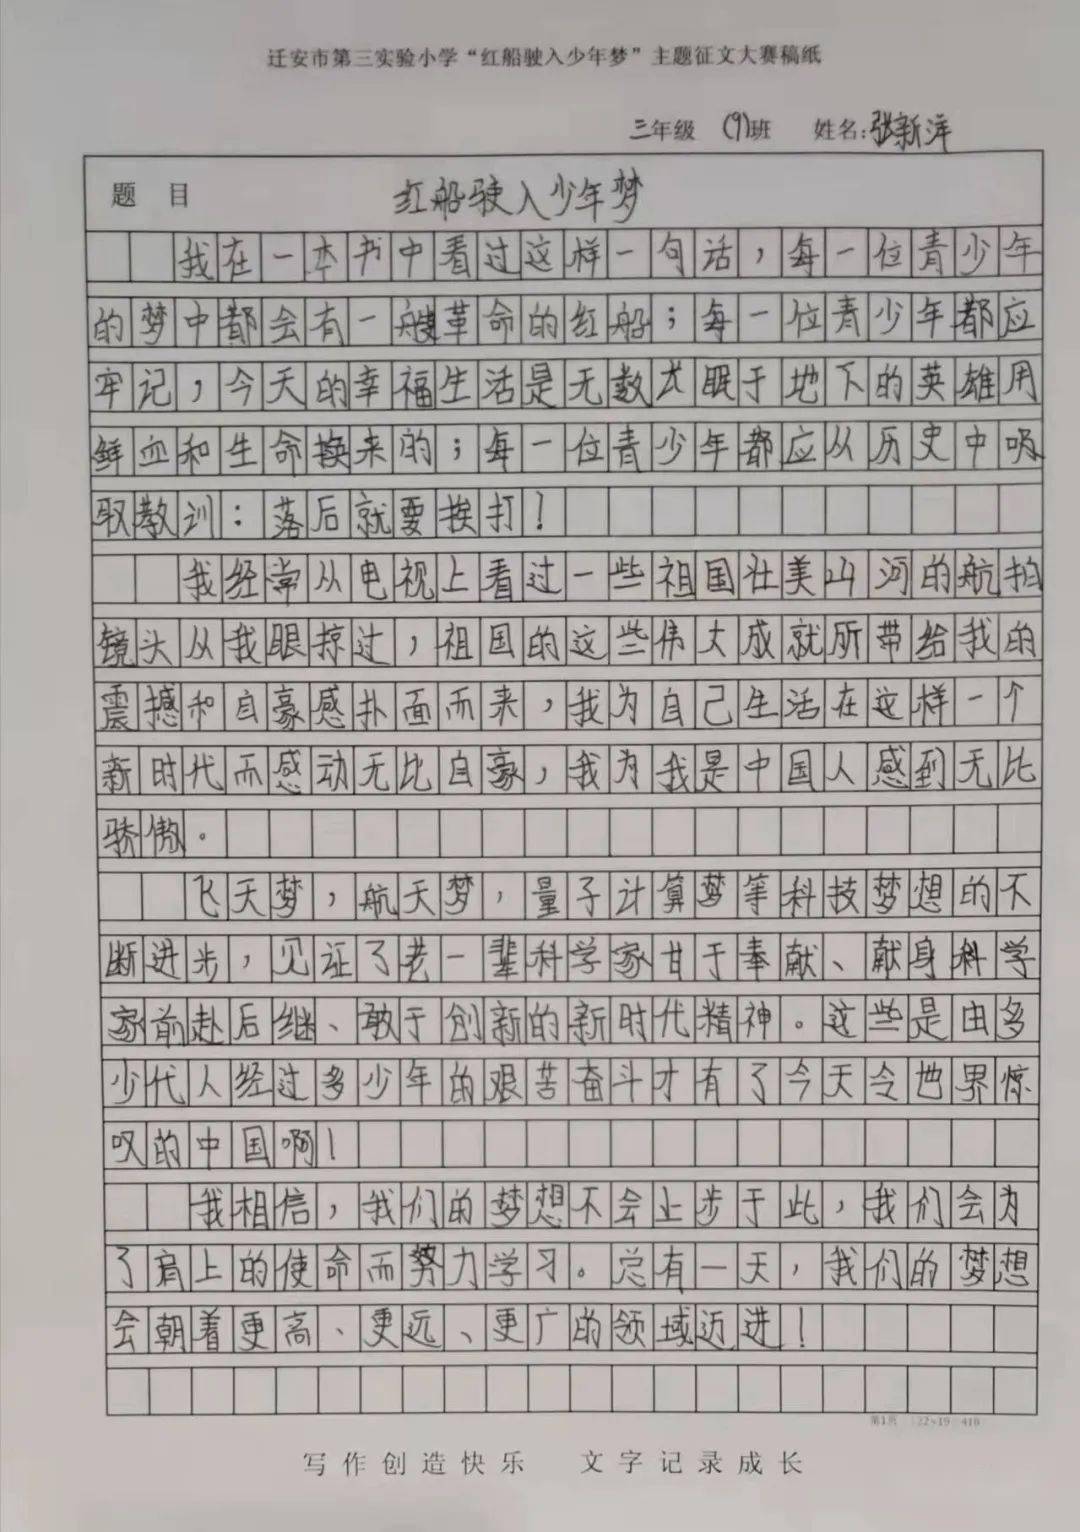 迁安市第三实验小学“红船驶入少年梦”主题征文大赛稿纸
三年级 (9)班 姓名:张新洋
题目 红船驶入少年梦
我在一本书中看过这样一句话，每一位青少年
的梦中都会有一艘革命的红船；每一位青少年都应
牢记，今天的幸福生活是无数长眠于地下的英雄用
鲜血和生命换来的；每一位青少年都应从历史中吸
取教训：落后就要挨打！
我经常从电视上看过一些祖国壮美山河的航拍
镜头从我眼掠过，祖国的这些伟大成就所带给我的
震撼和自豪感扑面而来，我为自己生活在这样一个
新时代而感动无比自豪，我为我是中国人感到无比
骄傲。
飞天梦，航天梦，量子计算梦等科技梦想的不
断进步，见证了老一辈科学家甘于奉献、献身科学
家前赴后继、敢于创新的新时代精神。这些是由多
少代人经过多少年的艰苦奋斗才有了今天令世界惊
叹的中国啊！
我相信，我们的梦想不会止步于此，我们会为
了肩上的使命而努力学习。总有一天，我们的梦想
会朝着更高、更远、更广的领域迈进！
第1页 22×19 418
写作创造快乐 文字记录成长